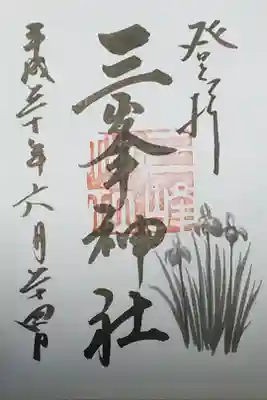 登拝
三峯神社
平成三十年六月廿四日